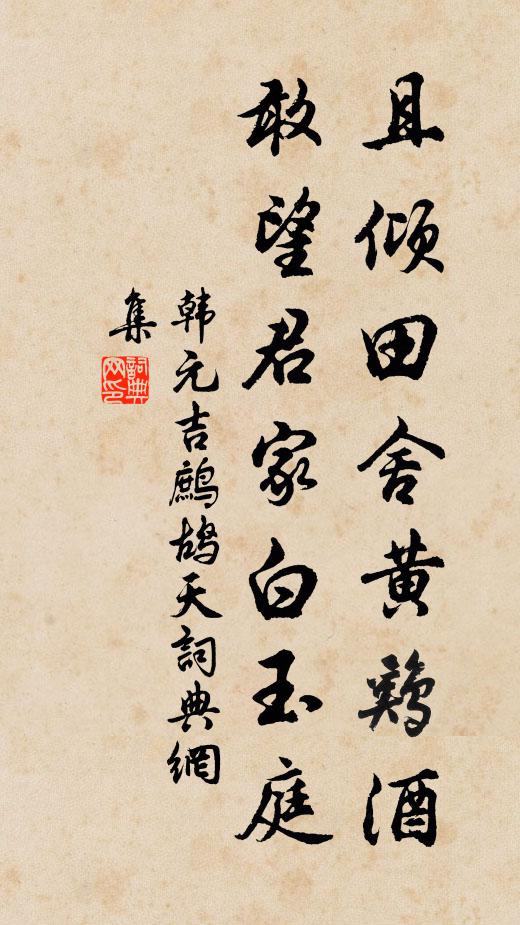 且倾田舍黄鸡酒
敢望君家白玉庭
韩元吉鹧鸪天詞典網
集
詞典
网印